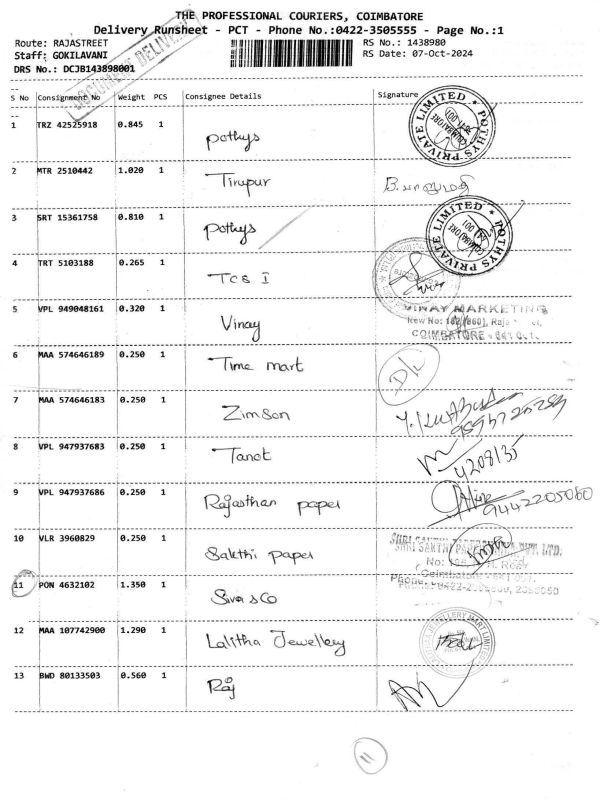 THE PROFESSIONAL COURIERS, COIMBATORE
Delivery Runsheet - PCT - Phone No.:0422-3505555 - Page No.:1
Route: RAJASTREET RS No.: 1438980
Staff: GOKILAVANI RS Date: 07-Oct-2024
DRS No.: DCJB143898001
S No Consignment No Weight PCS Consignee Details Signature
1 TRZ 42525918 0.845 1 pothys
POTHYS PRIVATE LIMITED COIMBATORE 641 001
2 MTR 2510442 1.020 1 Tirupur
3 SRT 15361758 0.810 1 pothys
POTHYS PRIVATE LIMITED COIMBATORE 641 001
4 TRT 5103188 0.265 1 TCS I
5 VPL 949048161 0.320 1 Vinay
VINAY MARKETING
COIMBATORE - 641 001.
6 MAA 574646189 0.250 1 Time mart D/L
7 MAA 574646183 0.250 1 Zimson
8 VPL 947937683 0.250 1 Tanot
4208135
9 VPL 947937686 0.250 1 Rajasthan paper
9442205060
10 VLR 3960829 0.250 1 Sakthi paper
11 PON 4632102 1.350 1 Siva & Co
12 MAA 107742900 1.290 1 Lalitha Jewellery
13 BWD 80133503 0.560 1 Raj
11